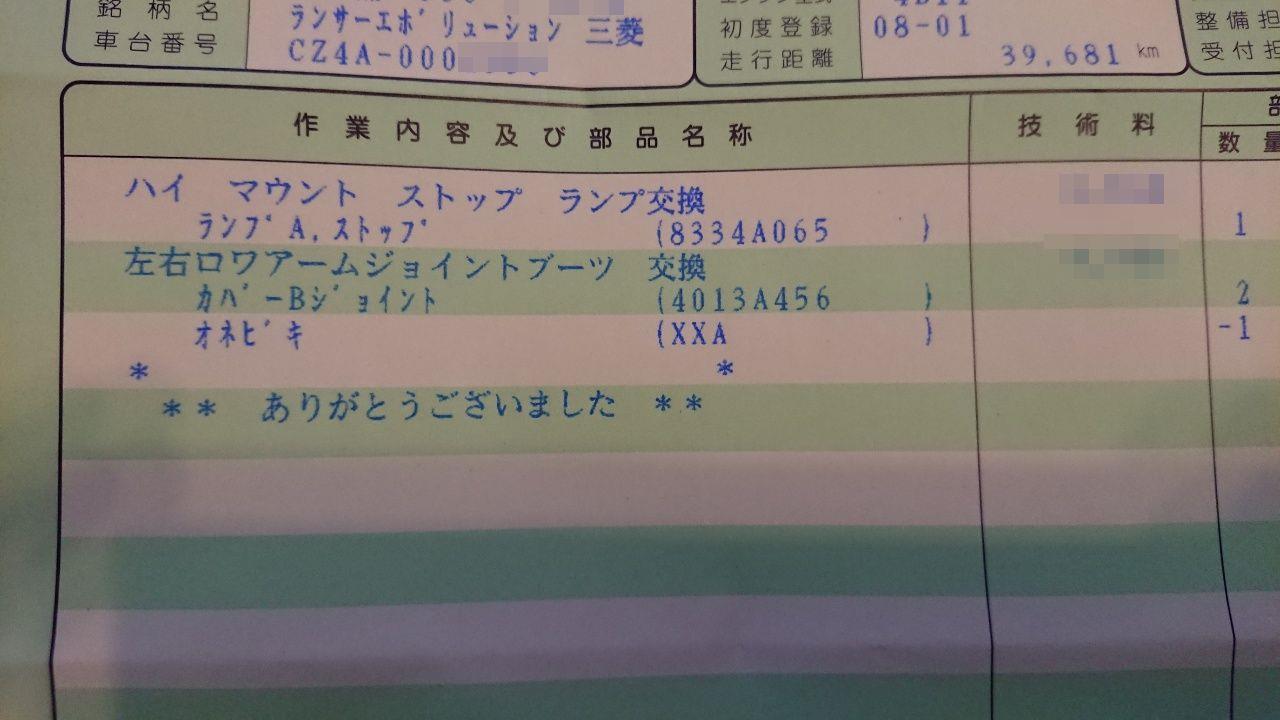 銘柄名
ランサーエボリューション 三菱
車台番号
CZ4A-000
初度登録
08-01
走行距離
39,681 km
整備担
受付担
作業内容及び部品名称
技術料
数量
ハイ マウント ストップ ランプ交換
ランプA,ストップ (8334A065 ) 1
左右ロワアームジョイントブーツ 交換
カバーBジョイント (4013A456 ) 2
オネビキ (XXA ) -1
* *
** ありがとうございました **